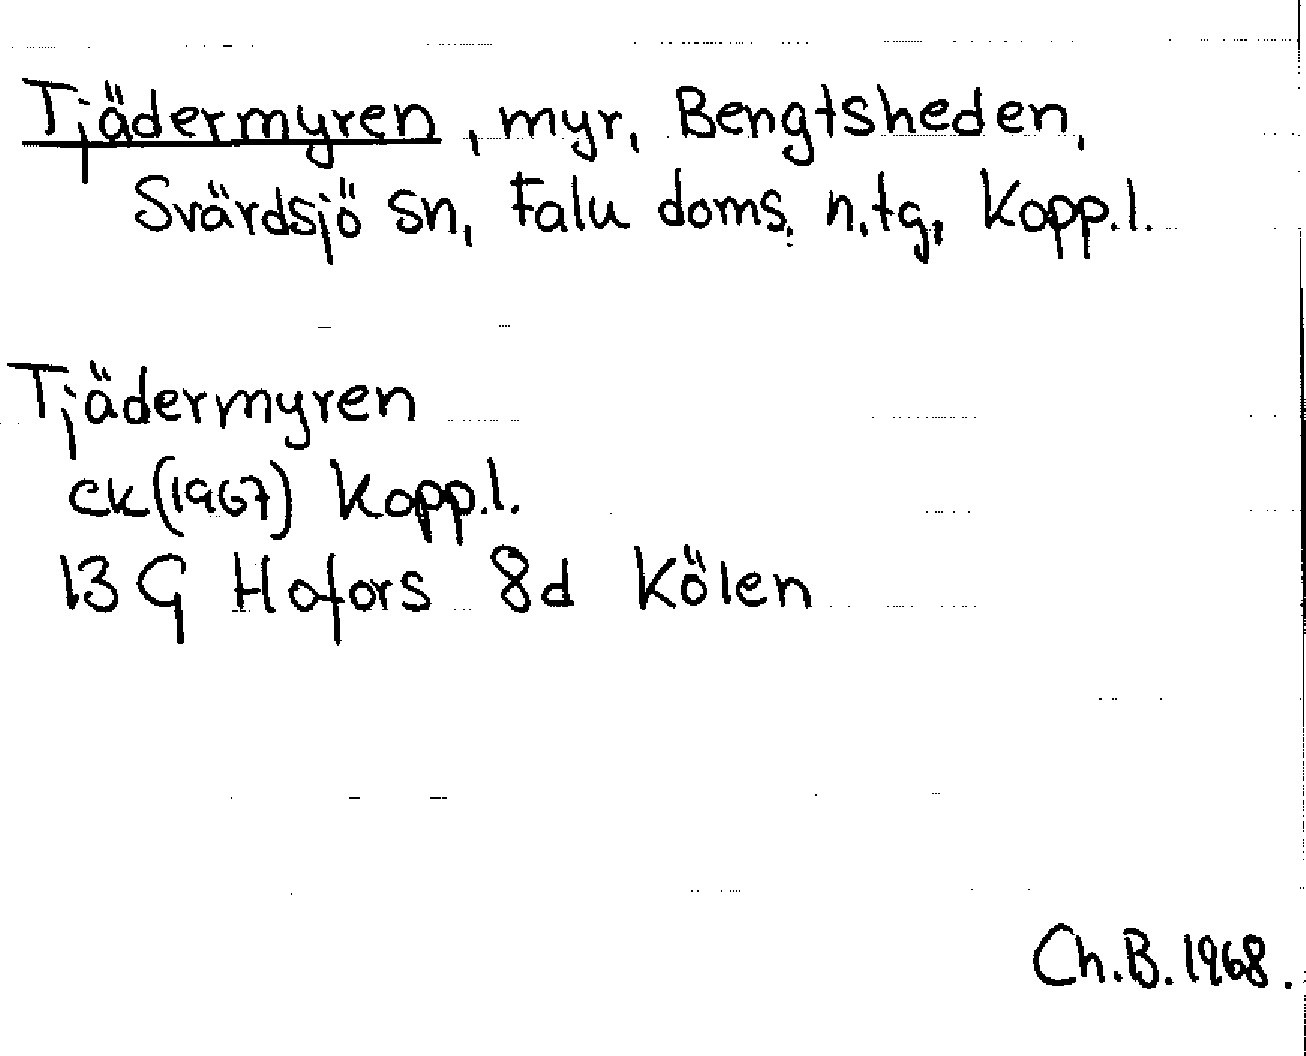 Tjädermyren, myr, Bengtsheden,
Svärdsjö sn, Falu doms. n.tg, Kopp.l.
Tjädermyren
ek(1967) Kopp.l.
13 G Hofors 8d Kölen
Ch.B. 1968.